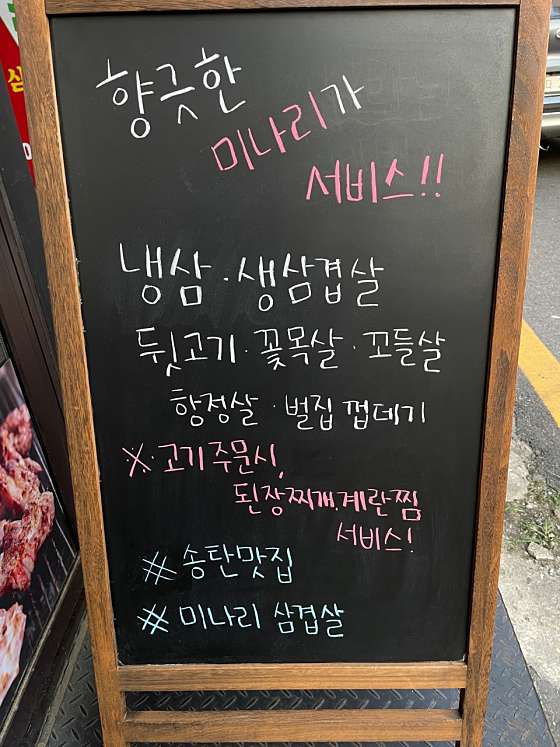 향긋한
미나리가
서비스!!
냉삼 · 생삼겹살
뒷고기 · 꽃목살 · 꼬들살
항정살 · 벌집 껍데기
※ · 고기 주문시,
된장찌개, 계란찜
서비스!
# 송탄맛집
# 미나리 삼겹살